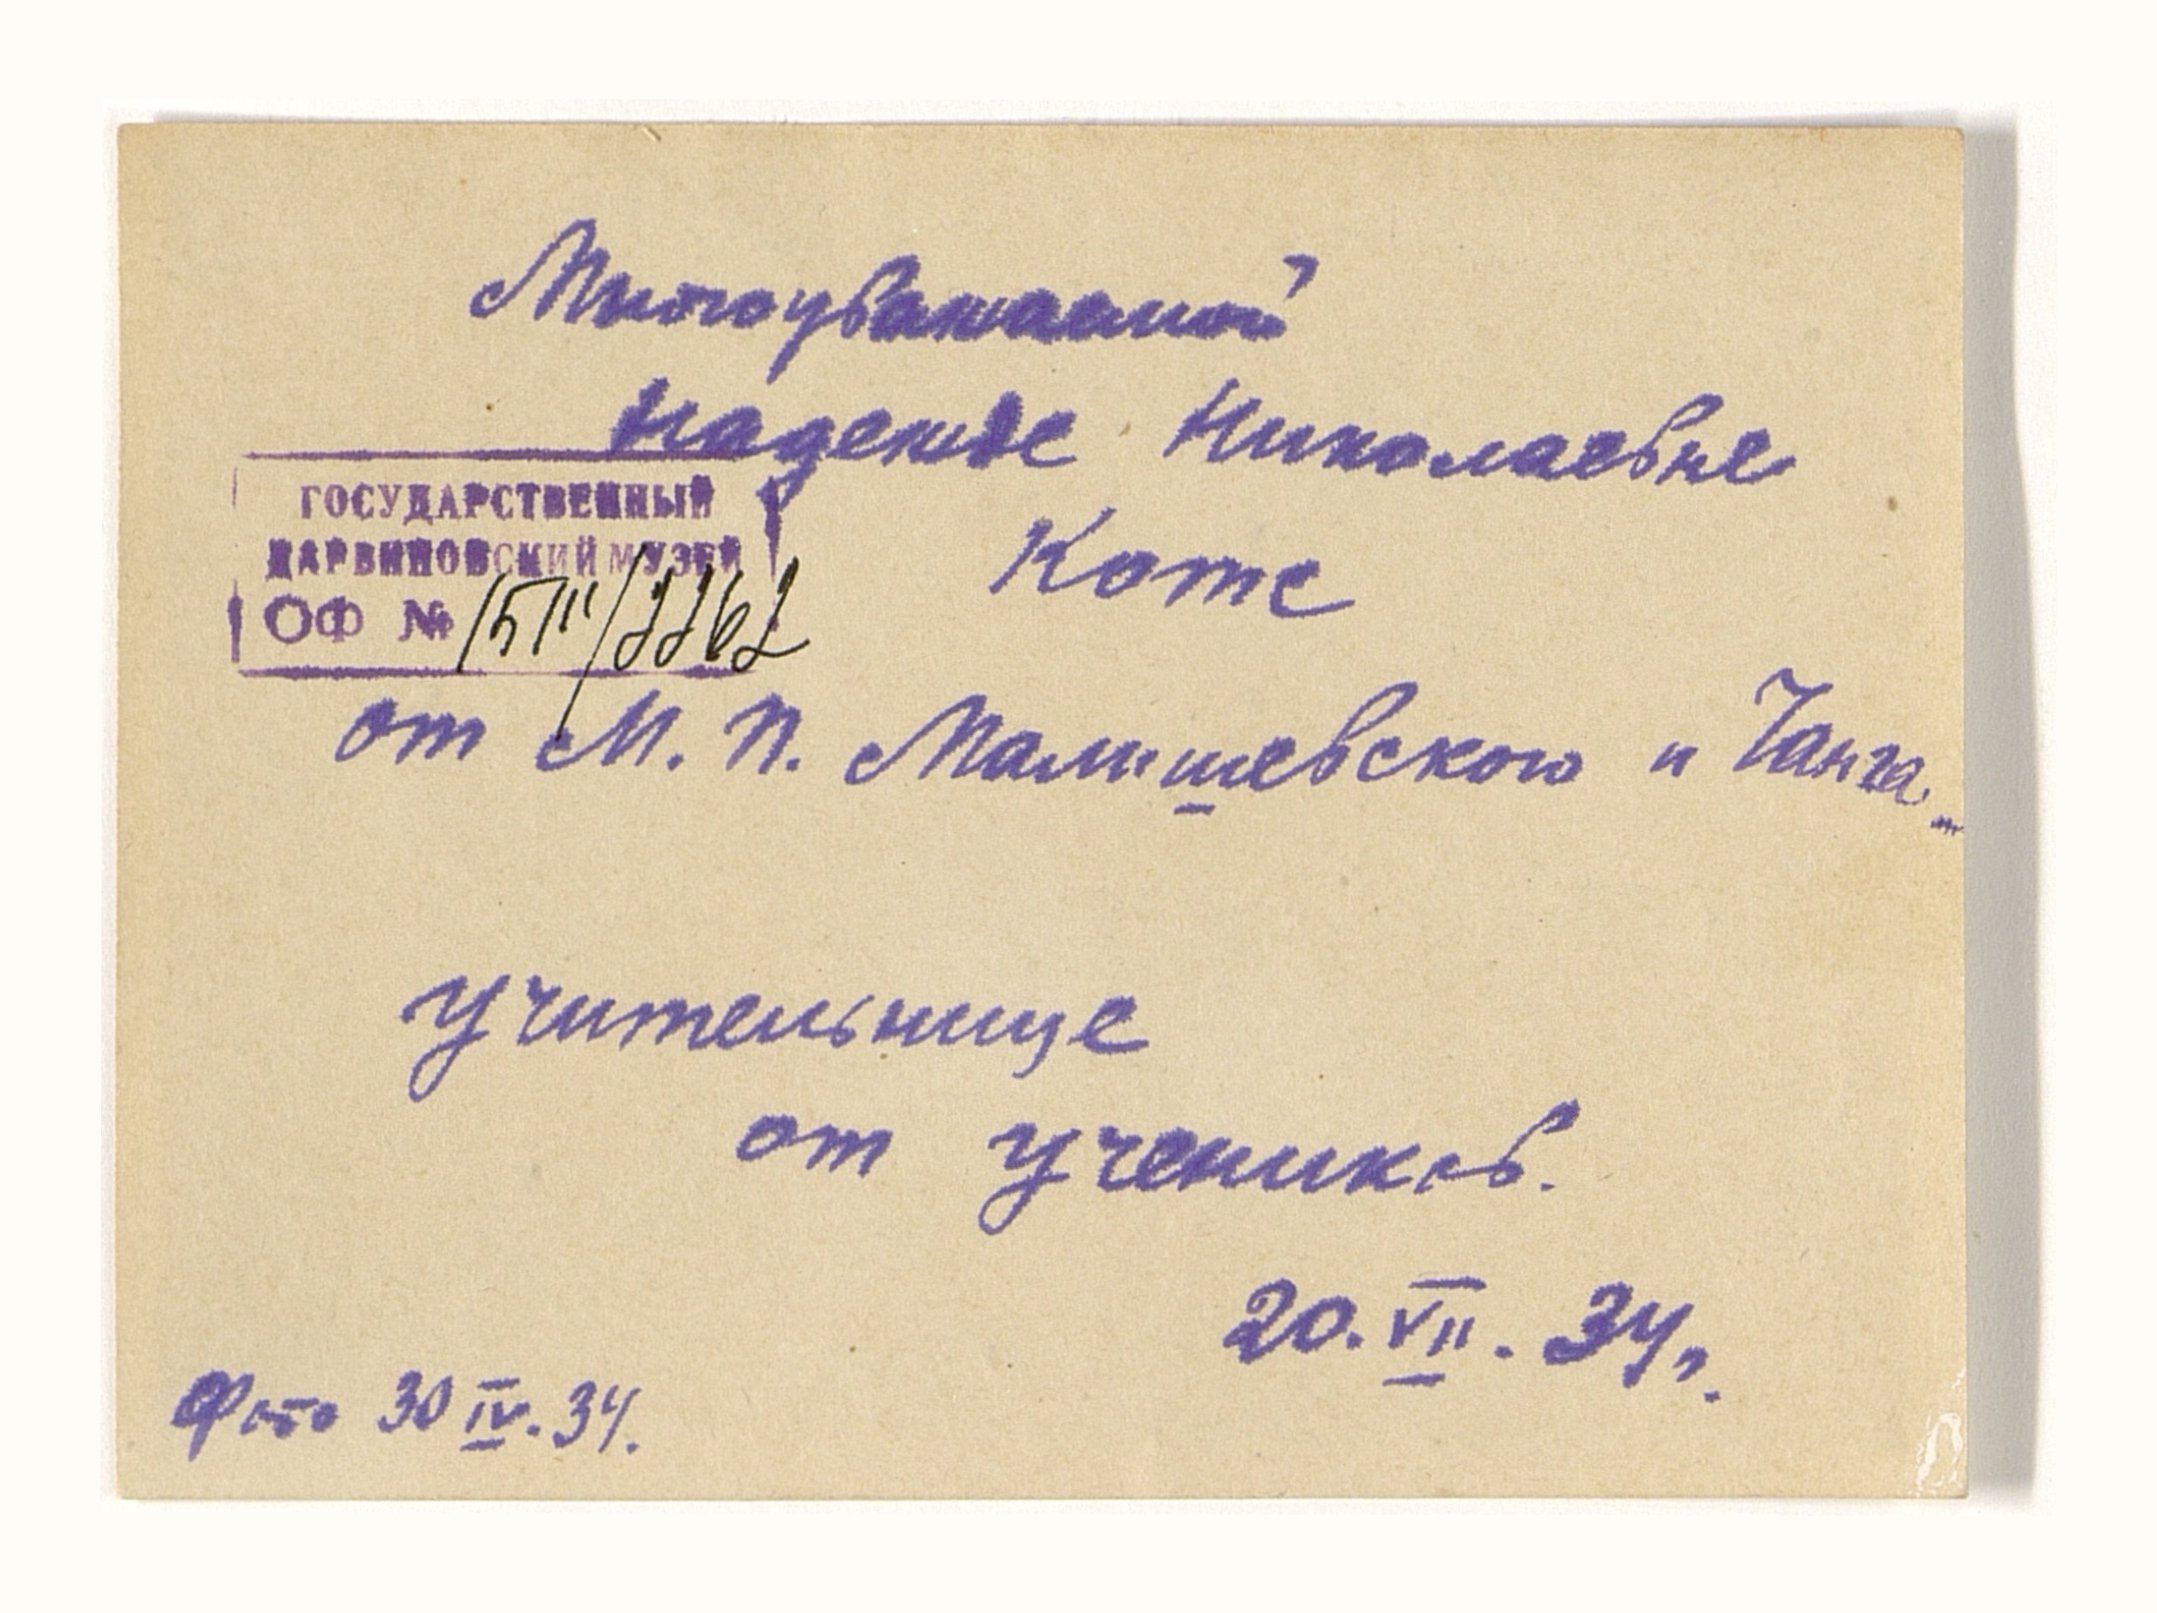 Многоуважаемой
Надежде Николаевне
Котс
ГОСУДАРСТВЕННЫЙ
ДАРВИНОВСКИЙ МУЗЕЙ
ОФ №
от М. П. Малышевского и Чанга
учительнице
от учеников.
20.VII.34г.
Фото 30 IV.34.